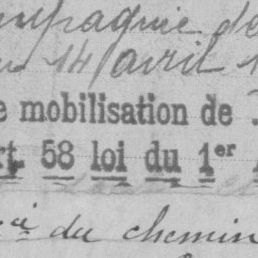 mpagnie de
14 avril 1
e mobilisation de
rt. 58 loi du 1er
du chemin